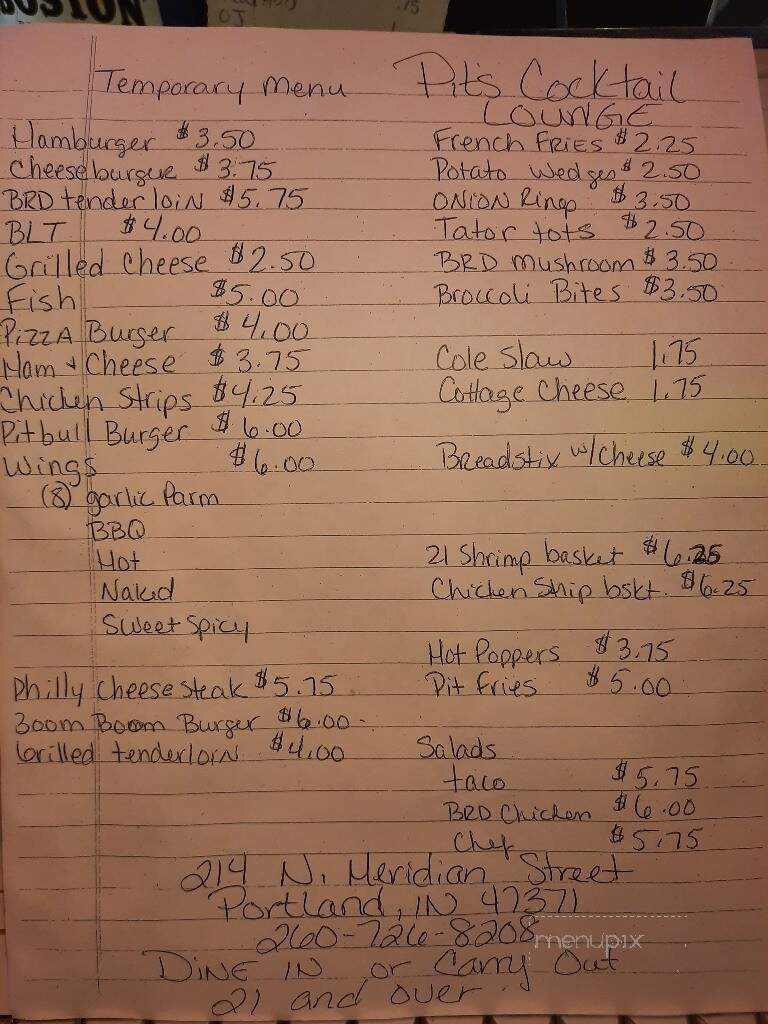 BOSTON
OJ
.75
Temporary Menu
Pit's Cocktail
LOUNGE
Hamburger $3.50
Cheeseburgue $3.75
BRD tenderloin $5.75
BLT $4.00
Grilled Cheese $2.50
Fish $5.00
PIZZA Burger $4.00
Ham + Cheese $3.75
Chicken Strips $4.25
Pitbull Burger $6.00
Wings $6.00
(8) garlic Parm
BBQ
Hot
Naked
Sweet Spicy
Philly Cheese steak $5.75
Boom Boom Burger $6.00
Grilled tenderloin $4.00
French FRIES $2.25
Potato Wedges $2.50
ONION Rings $3.50
Tator tots $2.50
BRD mushroom $3.50
Broccoli Bites $3.50
Cole Slaw 1.75
Cottage Cheese 1.75
Breadstix w/Cheese $4.00
21 Shrimp basket $6.25
Chicken Ship bskt. $6.25
Hot Poppers $3.75
Pit Fries $5.00
Salads
taco $5.75
BRD Chicken $6.00
Chef $5.75
214 N. Meridian Street
Portland, IN 47371
260-726-8208
menupix
DINE IN or Carry Out
21 and over.